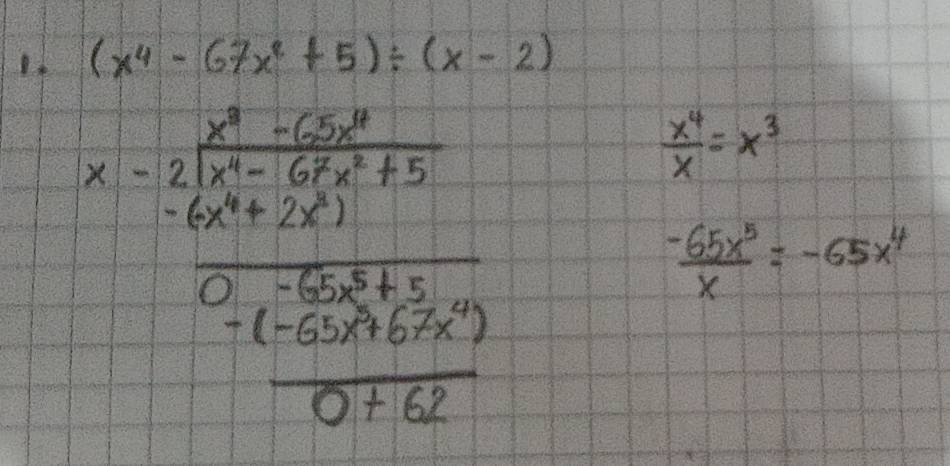 1. (x⁴ - 67x² + 5) ÷ (x - 2)
x³ -65x⁴
x - 2 √x⁴ - 67x² + 5
-(x⁴ + 2x³)
0 -65x⁵ + 5
-(-65x⁵ + 67x⁴)
0 + 62
x⁴/x = x³
-65x⁵/x = -65x⁴